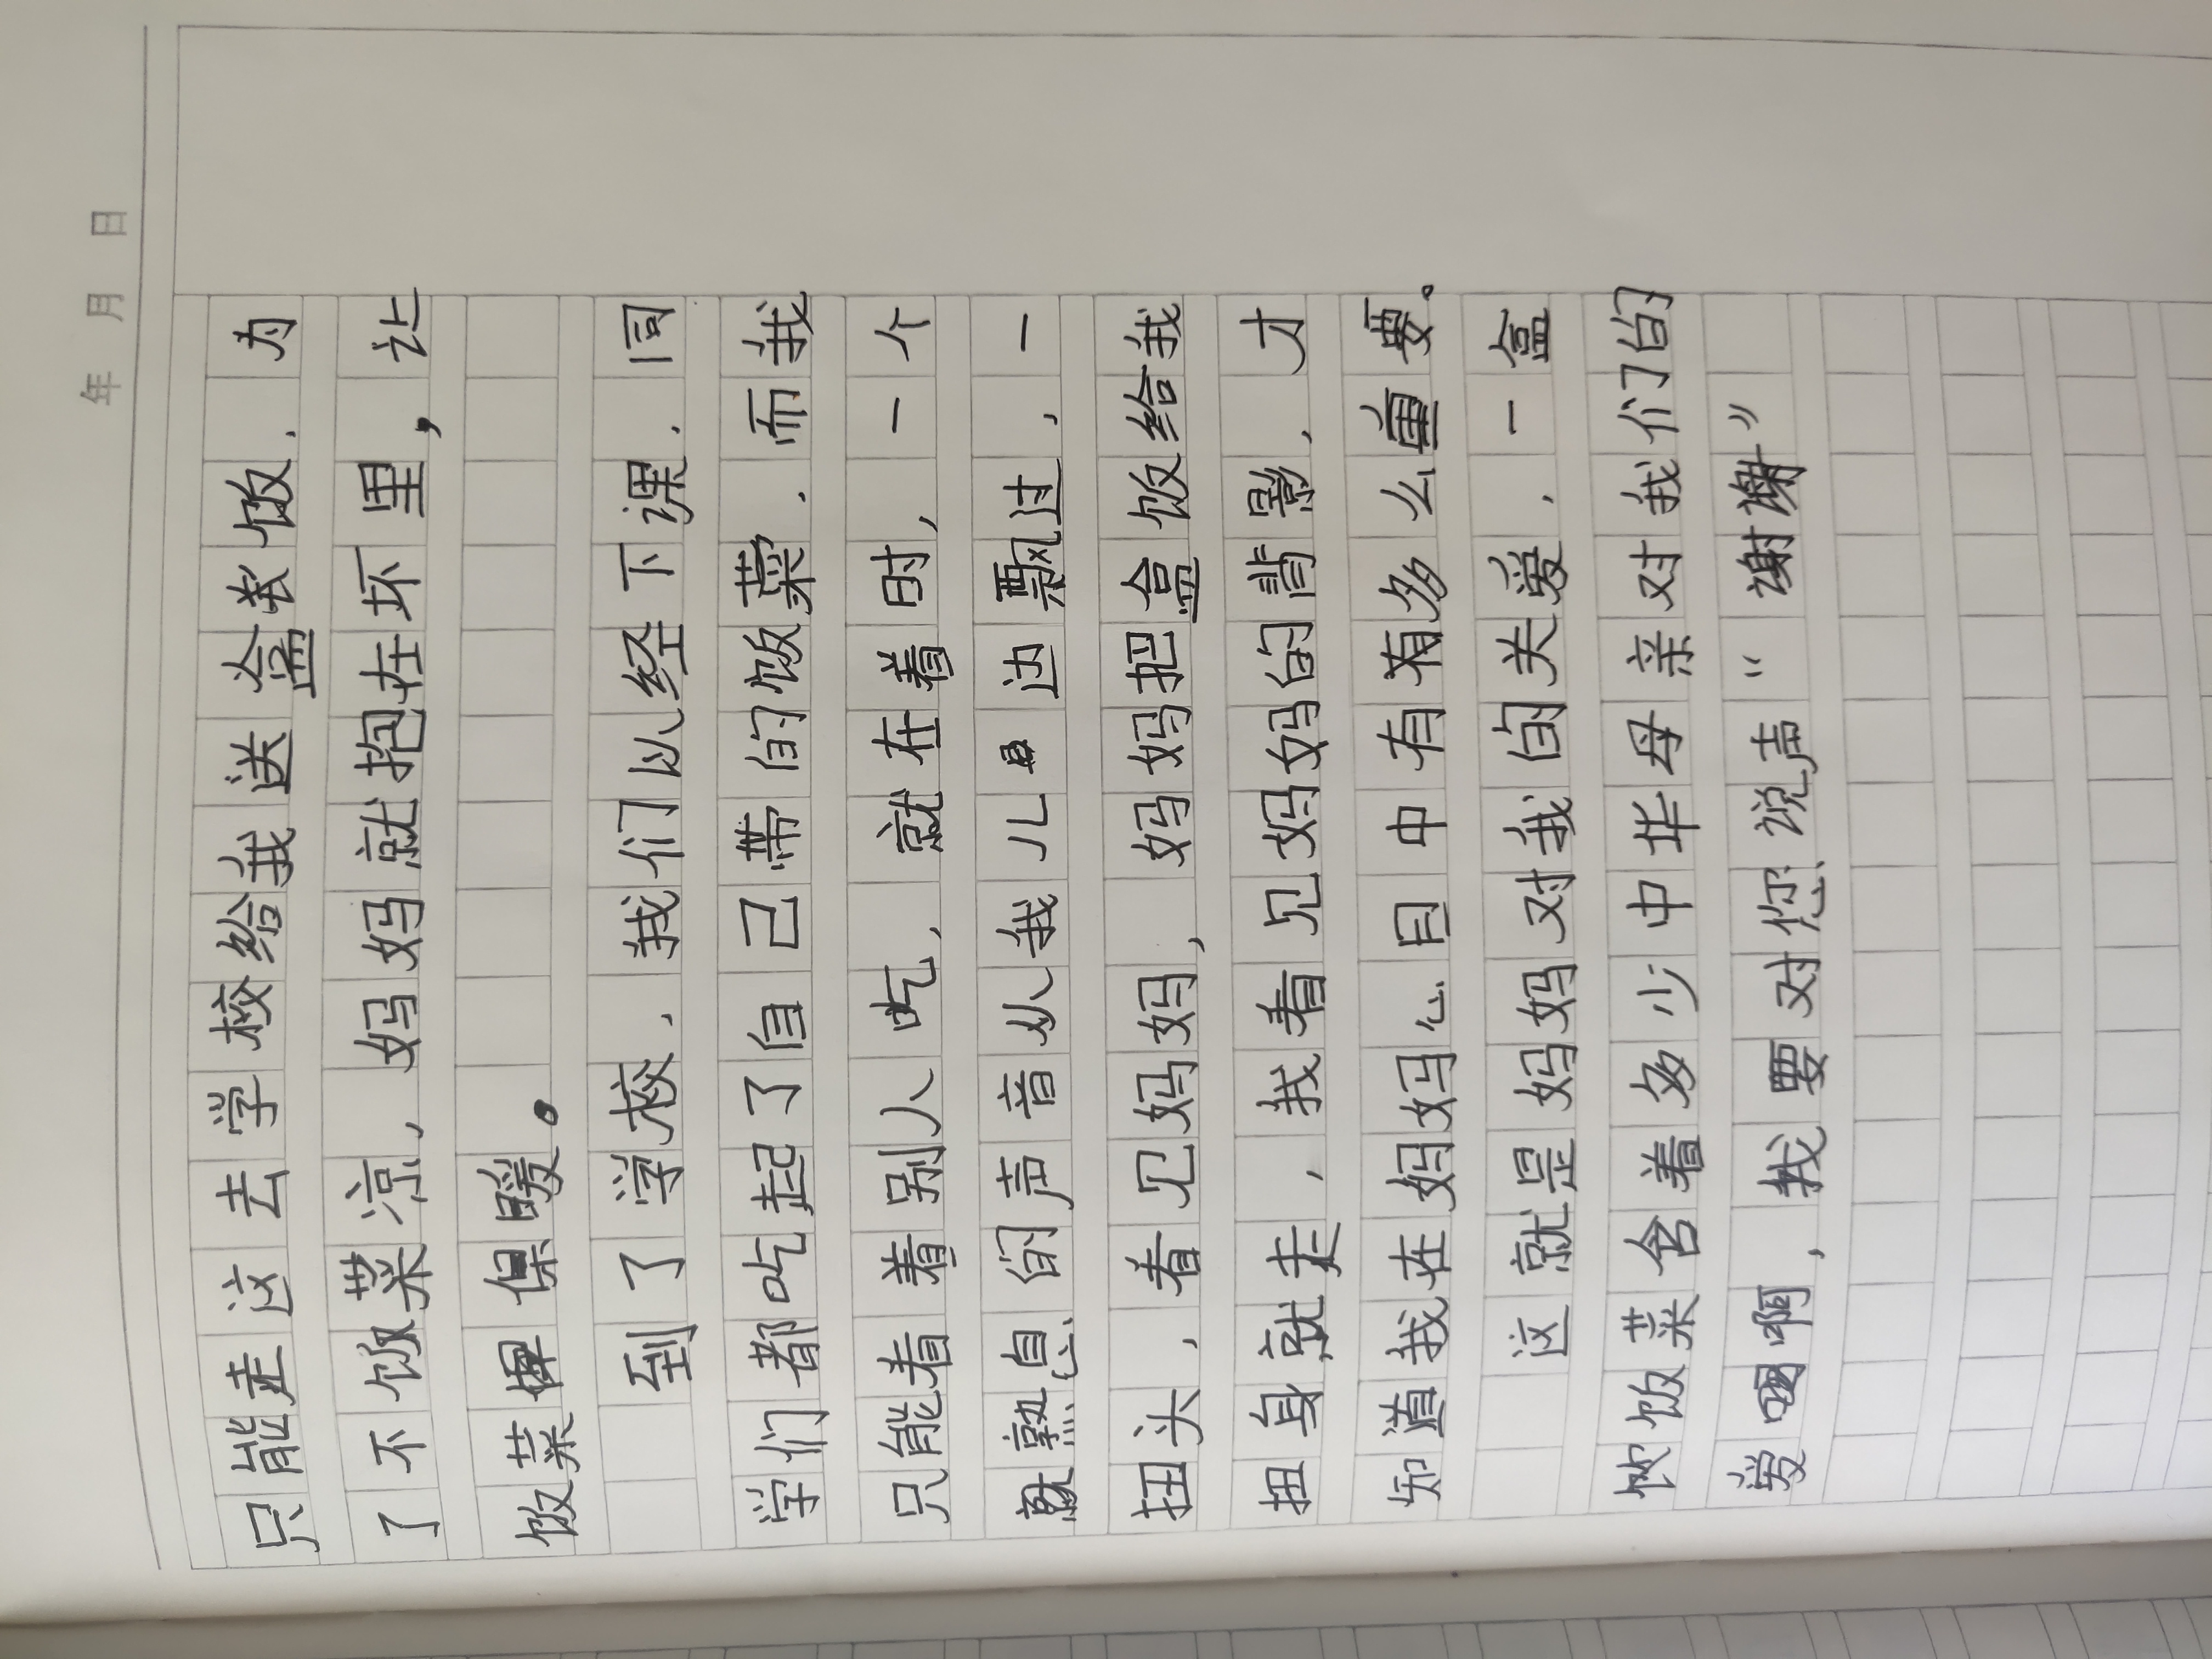 年 月 日
只能走这去学校给我送盒饭.为
了不饭菜凉,妈妈就抱在坏里,让
饭菜保暖。
到了学校.我们以经下课.同
学们都吃起了自己带的饭菜.而我
只能看着别人吃,就在着时,一个
熟息的声音从我儿边飘过,一
扭头,看见妈妈,妈妈把盒饭给我
扭身就走,我看见妈妈的背影,才
知道我在妈妈心目中有多么重要。
这就是妈妈对我的关爱,一盒
饭菜含着多少中华母亲对我们的
爱啊,我要对您说声“谢谢”